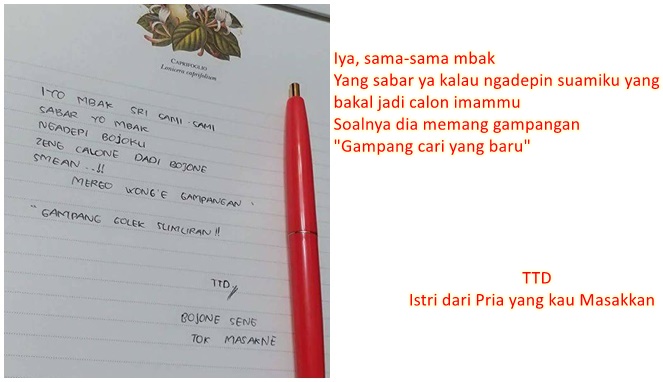 CAPRIFOGLIO
Lonicera caprifolium
IYO MBAK SRI SAMI-SAMI
SABAR YO MBAK
NGADEPI BOJOKU
ZENG CALONE DADI BOJONE
SMEAN...!!
MERGO WONG'E GAMPANGAN
"GAMPANG GOLEK SLIMURAN!!
TTD
BOJONE SENG
TOK MASAKNE
Iya, sama-sama mbak
Yang sabar ya kalau ngadepin suamiku yang
bakal jadi calon imammu
Soalnya dia memang gampangan
"Gampang cari yang baru"
TTD
Istri dari Pria yang kau Masakkan